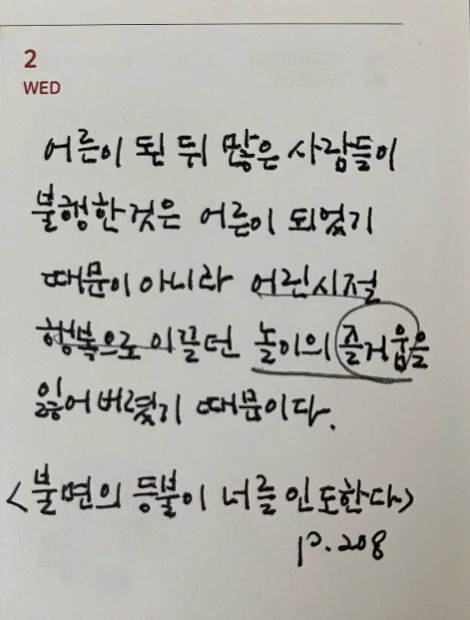 2
WED
어른이 된 뒤 많은 사람들이
불행한 것은 어른이 되었기
때문이 아니라 어린시절
행복으로 이끌던 놀이의 즐거움을
잃어버렸기 때문이다.
<불면의 등불이 너를 인도한다>
p.208